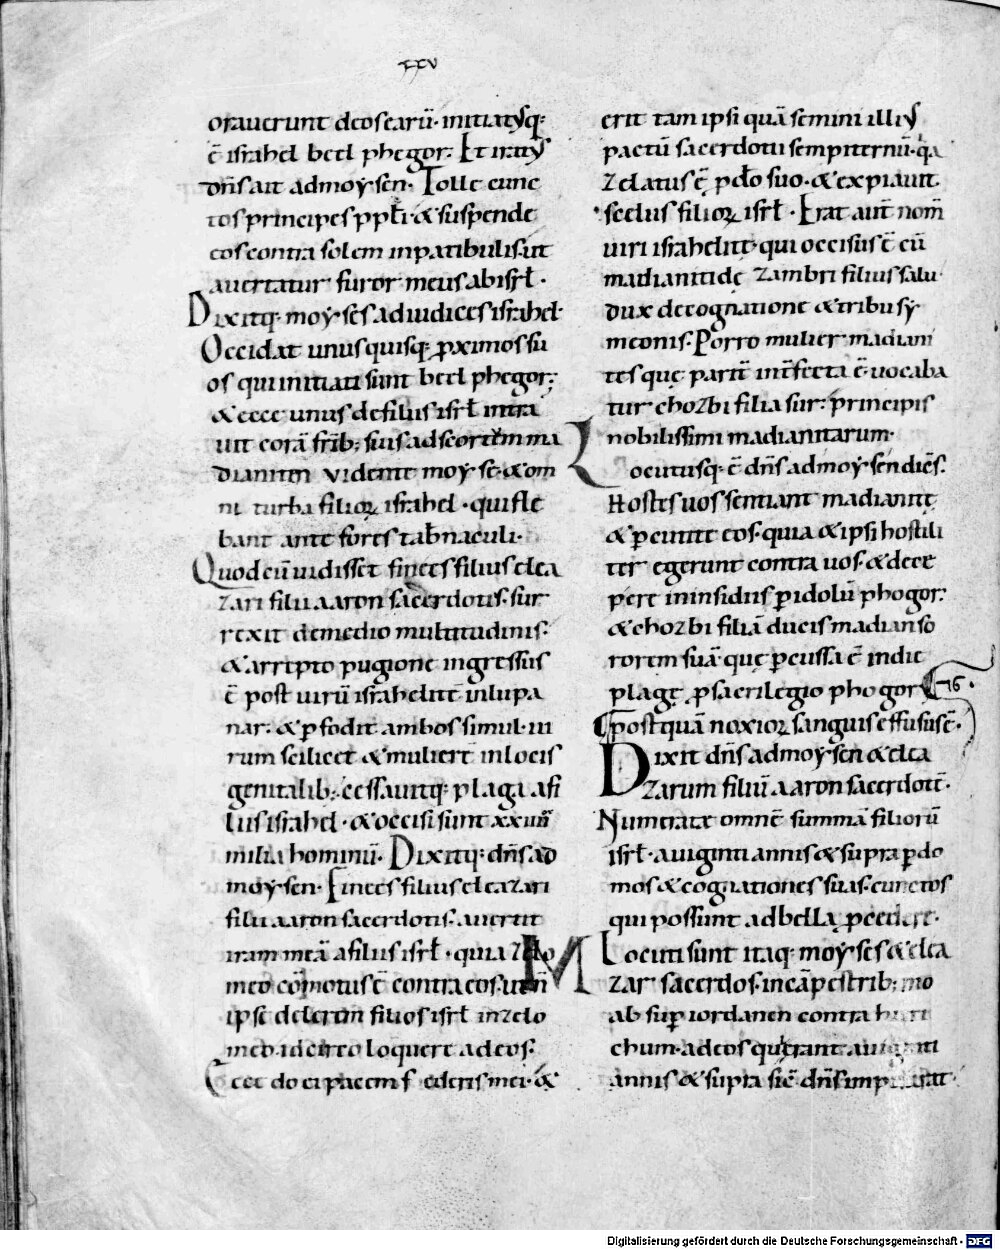 xxv
orauerunt deos earū· initiatusq;
ē israhel beel phegor· Et iratus
dn̄s ait ad moysen· Tolle cunc
tos principes ppłi & suspende
eos contra solem in patibulis· ut
auertatur furor meus ab isrł·
Dixitq; moyses ad iudices israhel·
Occidat unusquisq; ꝓximos su
os qui initiati sunt beel phegor;
& ecce unus de filiis isrł intra
uit corā frīb; suis ad scortum ma
dianiten uidente moyse· & om
ni turba filioꝝ israhel· qui fle
bant ante fores tabnaculi·
Quod cū uidisset finees filius elea
zari filii aaron sacerdotis· sur
rexit de medio multitudinis·
& arrepto pugione ingressus
ē post uirū israhelitē in lupa
nar· & ꝑfodit ambos simul· ui
rum scilicet & mulierē in locis
genitalib; cessauitq; plaga a fi
liis israhel· & occisi sunt xxiiii
milia hominū· Dixitq; dn̄s ad
moysen· Finees filius eleazari
filii aaron sacerdotis· auertit
iram meā a filiis isrł· quia zelo
meo cōmotus ē contra eos· ut n̄
ipse delerem filios isrł in zelo
meo· idcirco loquere ad eos·
Ecce do ei pacem federis mei· &
erit tam ipsi quā semini illius
pactū sacerdotii sempiternū· q̇a
zelatus ē ꝓ do̅ suo· & expiauit
scelus filioꝝ isrł· Erat aut̄ nom̄
uiri israhelitę· qui occisus ē cū
madianitide zambri filius salu
dux de cognatione & tribu sy
meonis· Porro mulier madiani
tes que parit̄ int̄fecta ē· uocaba
tur chozbi filia sur· principis
nobilissimi madianitarum·
Locutusq; ē dn̄s ad moysen dicēs·
Hostes uos sentiant madianitę
& ꝑcutite eos· quia & ipsi hostili
ter egerunt contra uos· & dece
pere insidiis ꝑ idolū phogor·
& chozbi filiā ducis madian so
rorem suā quę ꝑcussa ē in die
plagę ꝓ sacrilegio phogor
76·
Postquā noxioꝝ sanguis effusus ē·
Dixit dn̄s ad moysen & elea
zarum filiū aaron sacerdotē·
Numerate omnē summā filiorū
isrł· a uiginti annis & supra ꝑ do
mos & cognationes suas· cunctos
qui possunt ad bella ꝓcedere·
Locuti sunt itaq; moyses & elea
zar sacerdos· in cāpestrib; mo
ab suꝑ iordanen contra hieri
chum· ad eos qui erant a uiginti
annis & supra sic̄ dn̄s imperarat·
Digitalisierung gefördert durch die Deutsche Forschungsgemeinschaft - DFG